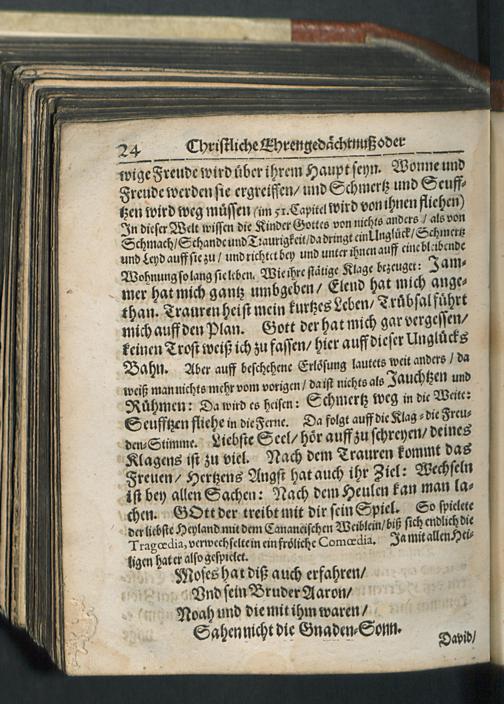 24 Christliche Ehrengedächtnuß oder
wige Freude wird über ihrem Haupt seyn. Wonne und
Freude werden sie ergreiffen/ und Schmertz und Seuff-
tzen wird weg müssen (im 51. Capitel wird von ihnen fliehen)
In dieser Welt wissen die Kinder Gottes von nichts anders/ als von
Schmach/ Schande und Traurigkeit/ da dringt ein Unglück/ Schmertz
und Leyd auff sie zu/ und richtet bey und unter ihnen auff eine bleibende
Wohnung so lang sie leben. Wie ihre stätige Klage bezeuget: Jam-
mer hat mich gantz umbgeben/ Elend hat mich ange-
than. Trauren heist mein kurtzes Leben/ Trübsal führt
mich auff den Plan. Gott der hat mich gar vergessen/
keinen Trost weiß ich zu fassen/ hier auff dieser Unglücks
Bahn. Aber auff beschehene Erlösung lautets weit anders/ da
weiß man nichts mehr vom vorigen/ da ist nichts als Jauchtzen und
Rühmen: Da wird es heisen: Schmertz weg in die Weite:
Seufftzen fliehe in die Ferne. Da folgt auff die Klag- die Freu-
den-Stimme. Liebste Seel/ hör auff zu schreyen/ deines
Klagens ist zu viel. Nach dem Trauren kommt das
Freuen/ Hertzens Angst hat auch ihr Ziel: Wechseln
ist bey allen Sachen: Nach dem Heulen kan man la-
chen. GOtt der treibt mit dir sein Spiel. So spielete
der liebste Heyland mit dem Cananeischen Weiblein/ biß sich endlich die
Tragœdia, verwechselte in ein fröliche Comœdia. Ja mit allen Hei-
ligen hat er also gespielet.
Moses hat diß auch erfahren/
Vnd sein Bruder Aaron/
Noah und die mit ihm waren/
Sahen nicht die Gnaden-Sonn.
David/